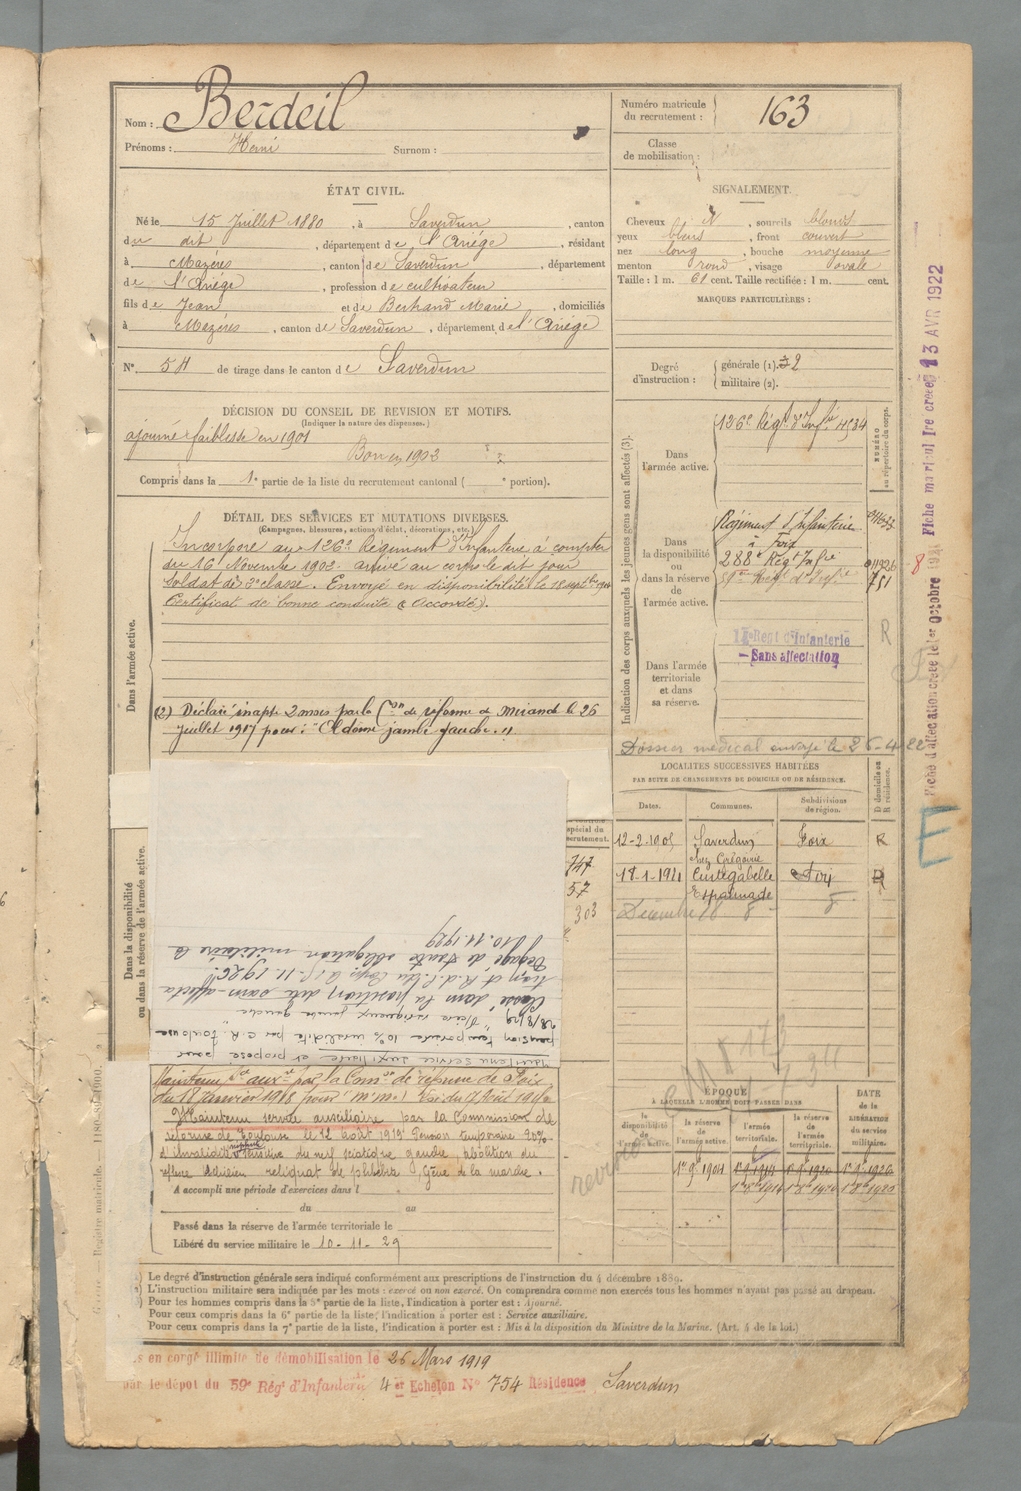 Nom : Berdeil
Prénoms : Henri Surnom :
Numéro matricule du recrutement : 163
Classe de mobilisation :
ÉTAT CIVIL.
Né le 15 Juillet 1880, à Saverdun, canton
du dit, département de l'Ariège, résidant
à Mazères, canton de Saverdun, département
de l'Ariège, profession de cultivateur
fils de Jean et de Bertrand Marie, domiciliés
à Mazères, canton de Saverdun, département de l'Ariège
N° 54 de tirage dans le canton de Saverdun
SIGNALEMENT.
Cheveux N, sourcils blonds
yeux bleus, front couvert
nez long, bouche moyenne
menton rond, visage ovale
Taille : 1 m. 61 cent. Taille rectifiée : 1 m. cent.
MARQUES PARTICULIÈRES :
Degré d'instruction : générale (1). 2
militaire (2).
DÉCISION DU CONSEIL DE REVISION ET MOTIFS.
(Indiquer la nature des dispenses.)
ajourné faiblesse en 1901
Bon en 1903
Compris dans la 1e partie de la liste du recrutement cantonal ( e portion).
DÉTAIL DES SERVICES ET MUTATIONS DIVERSES.
(Campagnes, blessures, actions d'éclat, décorations, etc.)
Dans l'armée active.
Incorporé au 126e Régiment d'Infanterie à compter
du 16 Novembre 1903. arrivé au corps le dit jour
soldat de 2e classe. Envoyé en disponibilité le 18 septbre 1904
Certificat de bonne conduite « Accordé ».
(2) Déclaré inapte 2 mois par la Con de réforme de Mirande le 26
Juillet 1917 pour : "Œdème jambe gauche."
Indication des corps auxquels les jeunes gens sont affectés (3).
NUMÉRO au répertoire du corps.
Dans l'armée active.
126e Régt d'Infrie
Dans la disponibilité ou dans la réserve de l'armée active.
Régiment d'Infanterie
à Foix
288e Régt Infie
59e Régt d'Infie
751
R
Dans l'armée territoriale et dans sa réserve.
Regt d'Infanterie
Sans affectation
Dossier médical envoyé le 26-4-22
Fiche matricul 1re créée 13 AVR 1922
Fiche d'affectation créée le 1er octobre
E
LOCALITÉS SUCCESSIVES HABITÉES
PAR SUITE DE CHANGEMENTS DE DOMICILE OU DE RÉSIDENCE.
Dates. Communes. Subdivisions de région. D domicile ou R résidence.
12-2-1905 Saverdun Foix R
18-1-1911 Cintegabelle
Décembre 18
Dans la disponibilité ou dans la réserve de l'armée active.
spécial du recrutement.
747
57
303
Maintenu service auxiliaire et proposé pour
pension temporaire 10% invalidité par C.R. Toulouse
28/8/29
Classé "dans la position dite sans affecta
tion"
Dégagé de toute obligation militaire le
10.11.1929
Maintenu Sce auxre par la Comon de réforme de Foix
du 18 janvier 1918 pour : m.m.
Maintenu service auxiliaire par la Commission de
réforme de Toulouse le 12 août 1919 Pension temporaire 20%
d'invalidité névrite du nerf sciatique gauche, abolition du
réflexe achiléen reliquat de phlébite, Gêne de la marche.
A accompli une période d'exercices dans l
du au
Passé dans la réserve de l'armée territoriale le
Libéré du service militaire le 10-11-29
ÉPOQUE À LAQUELLE L'HOMME DOIT PASSER DANS
DATE de la LIBÉRATION du service militaire.
la disponibilité de l'armée active. la réserve de l'armée active. l'armée territoriale. la réserve de l'armée territoriale.
) Le degré d'instruction générale sera indiqué conformément aux prescriptions de l'instruction du 4 décembre 1889.
) L'instruction militaire sera indiquée par les mots : exercé ou non exercé. On comprendra comme non exercés tous les hommes n'ayant pas passé au drapeau.
) Pour les hommes compris dans la 5e partie de la liste, l'indication à porter est : Ajourné.
Pour ceux compris dans la 6e partie de la liste, l'indication à porter est : Service auxiliaire.
Pour ceux compris dans la 7e partie de la liste, l'indication à porter est : Mis à la disposition du Ministre de la Marine. (Art. 4 de la loi.)
s en congé illimité de démobilisation le 26 Mars 1919
par le dépôt du 59e Régt d'Infanterie 4er Echelon N° 754 Résidence Saverdun
163